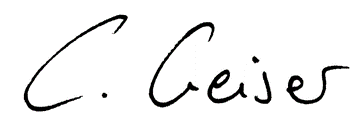 C. Geiser